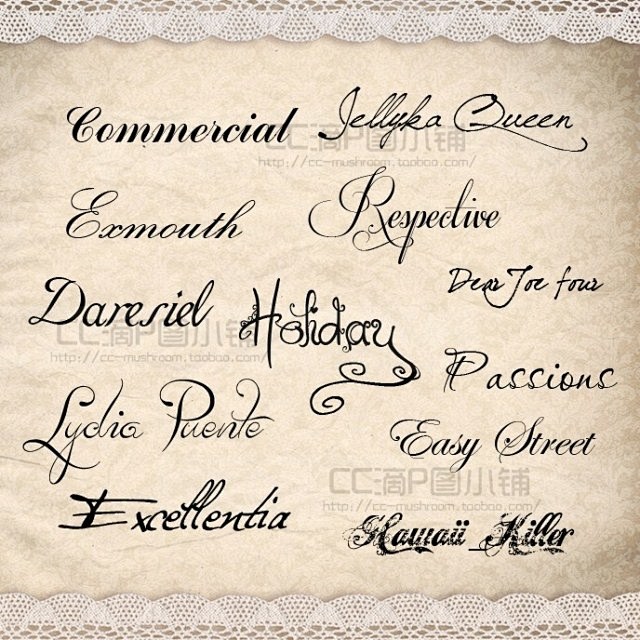 Commercial
Jellyka Queen
CC滴P图小铺
http://cc-mushroom.taobao.com/
Exmouth
Respective
Daresiel
Holiday
Dear Joe four
CC滴P图小铺
http://cc-mushroom.taobao.com/
Passions
Lydia Puente
Easy Street
CC滴P图小铺
http://cc-mushroom.taobao.com/
Excellentia
Hawaii_Killer